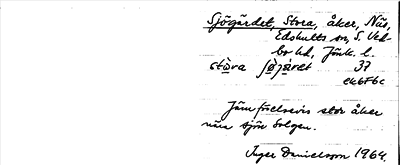 Sjögärdet, Stora, åker, Näs,
Edshults sn, S. Ved-
bo hd, Jönk. l.
37
ek6f6c
Jämförelsevis stor åker
nära sjön Solgen.
Inger Danielsson 1964.